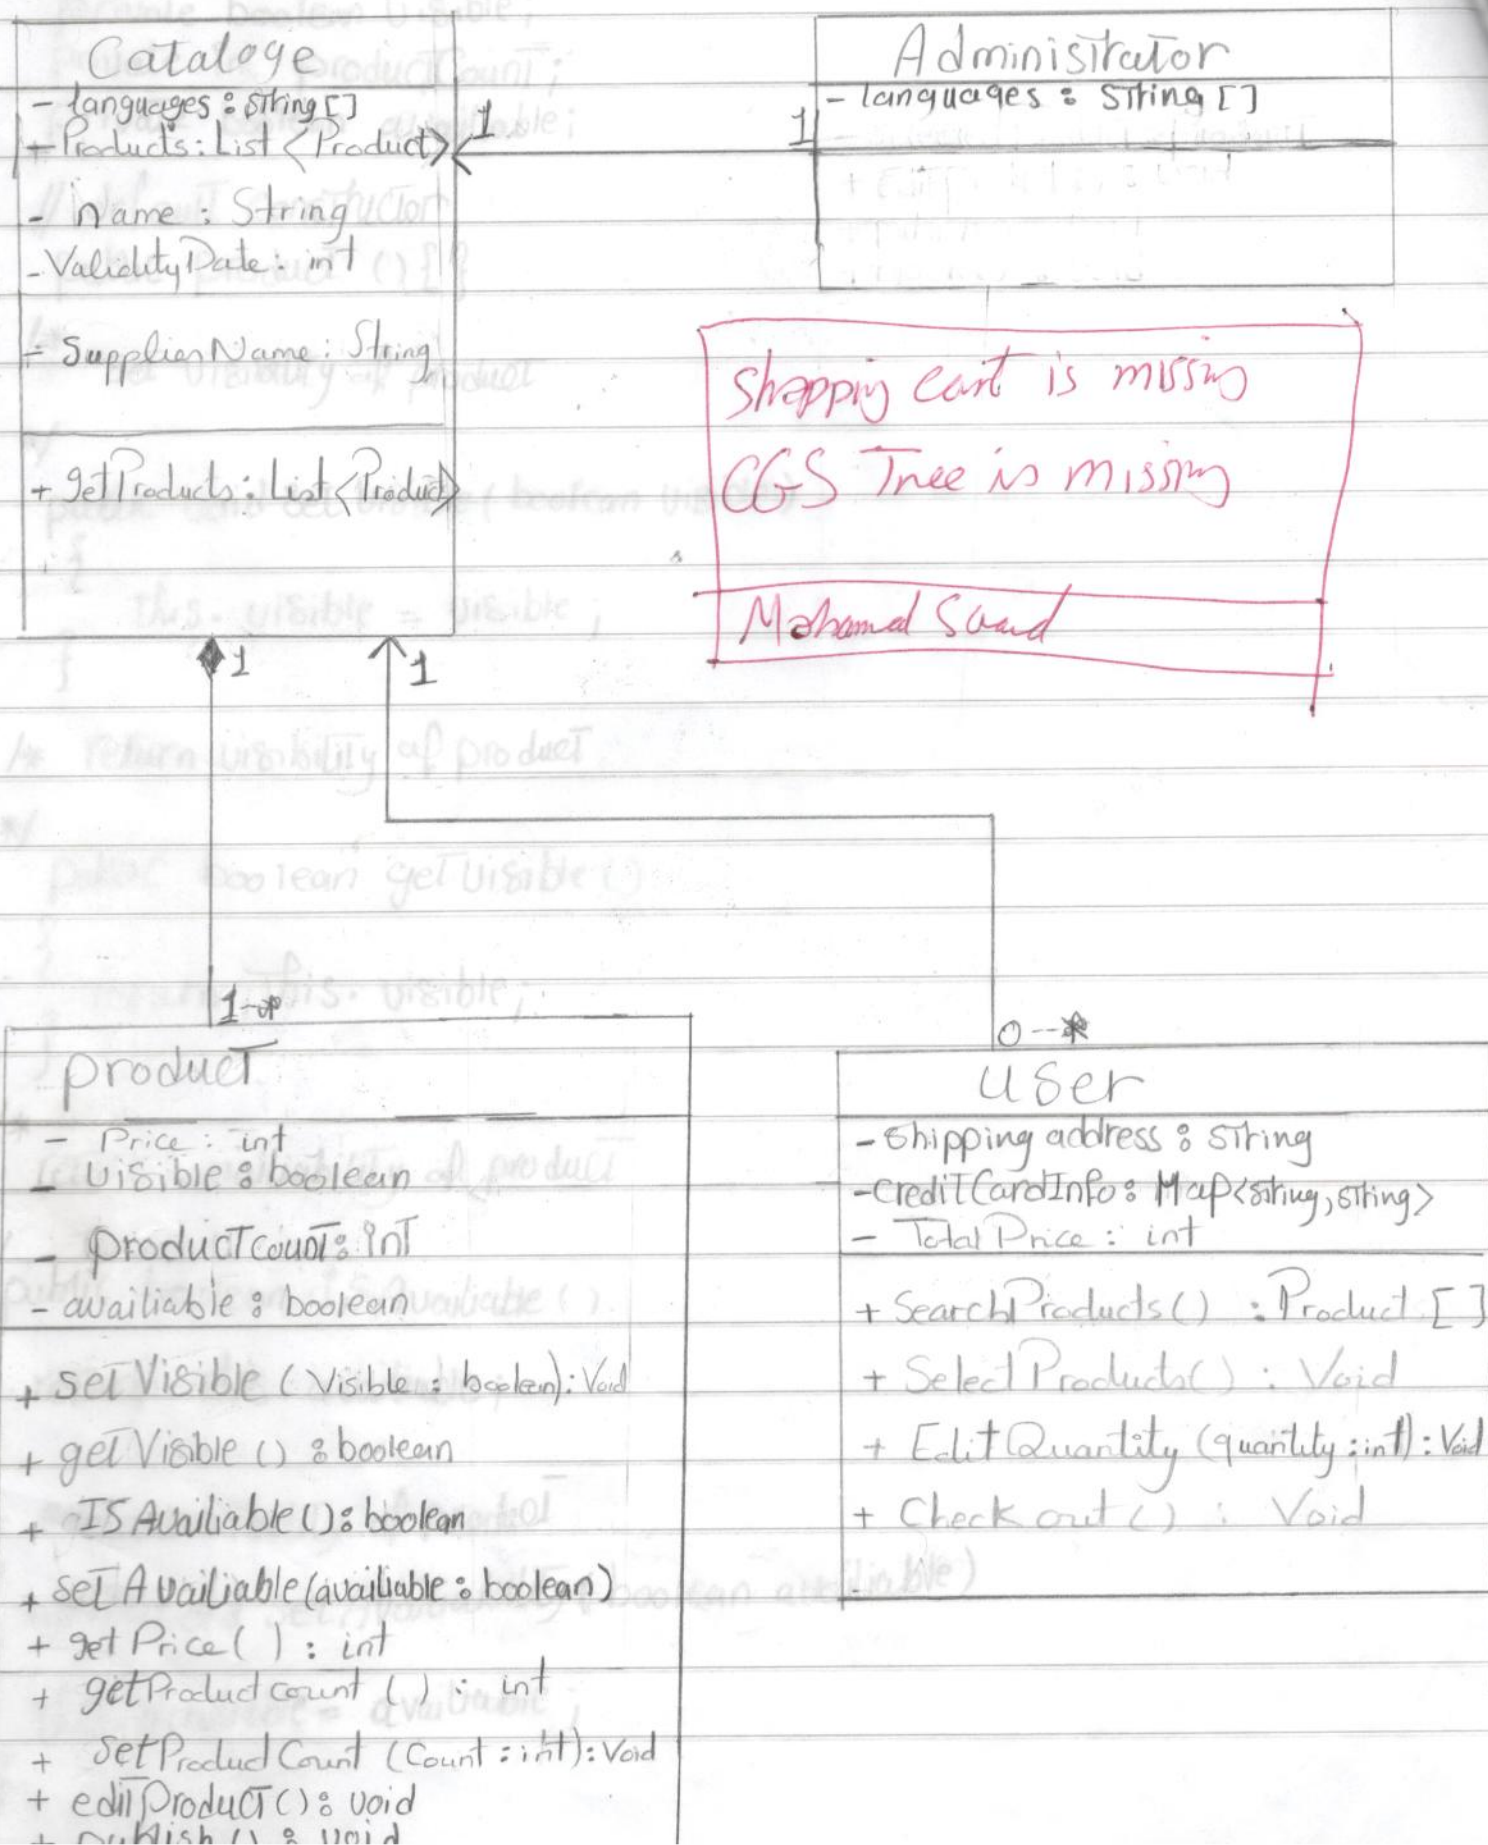 Cataloge
- languages : String []
+ Products : List <Product>
- Name : String
- ValidityDate : int
- SupplierName : String
+ getProducts : List <Product>
1
1
Administrator
- languages : String []
Shopping cart is missing
CGS Tree is missing
Mohamed
1
1
1--*
0--*
product
- Price : int
- visible : boolean
- productcount : int
- availiable : boolean
+ setVisible (Visible : boolean) : Void
+ getVisible () : boolean
+ ISAvailiable () : boolean
+ setAvailiable (availiable : boolean)
+ getPrice ( ) : int
+ getProductcount ( ) : int
+ setProductCount (Count : int) : Void
+ editProduct () : void
+ publish () : void
user
- shipping address : string
- creditCardInfo : Map<string, string>
- TotalPrice : int
+ SearchProducts () : Product [ ]
+ SelectProducts () : Void
+ EditQuantity (quantity : int) : Void
+ Checkout () : Void
return visibility of product
boolean getVisible ()
this.visible = visible ;